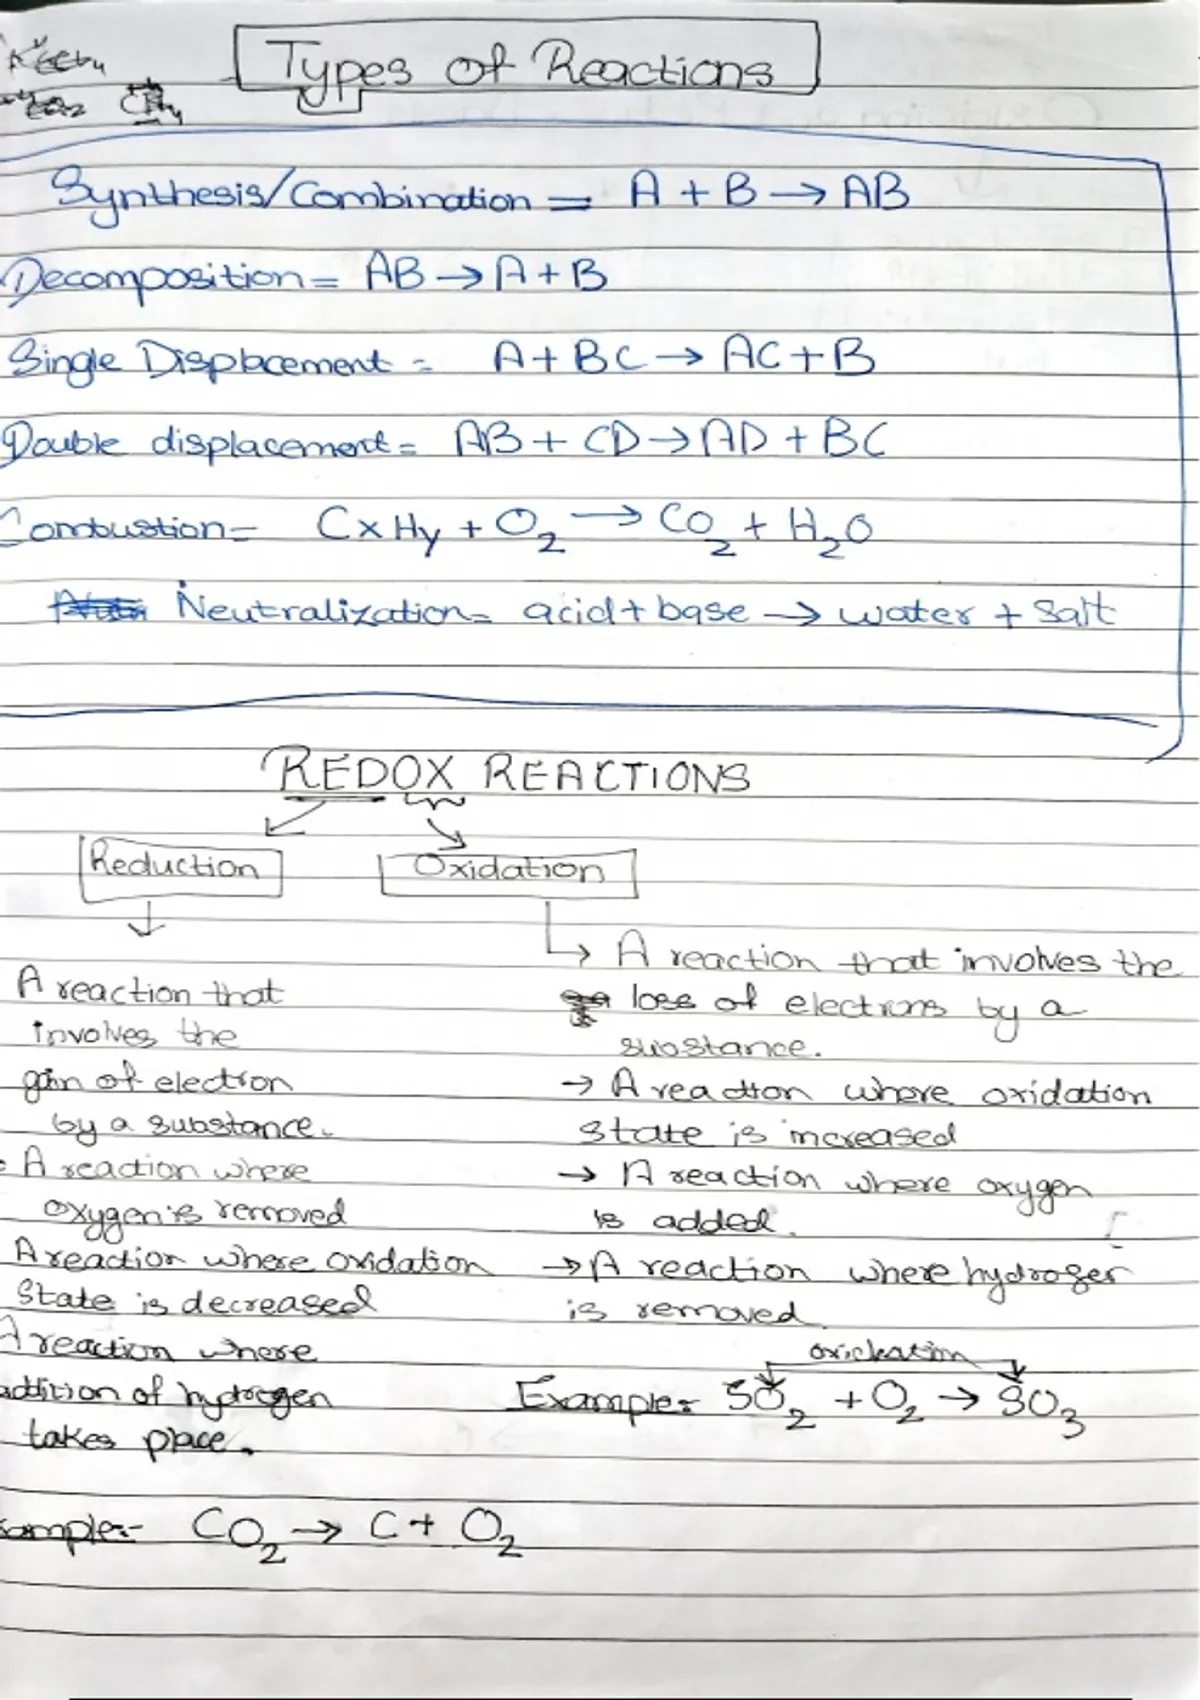 Types of Reactions
Synthesis/Combination = A + B → AB
Decomposition = AB → A + B
Single Displacement = A + BC → AC + B
Double displacement = AB + CD → AD + BC
Combustion = CxHy + O₂ → CO₂ + H₂O
Neutralization = acid + base → water + Salt
REDOX REACTIONS
Reduction
A reaction that
involves the
gain of electron
by a substance.
A reaction where
oxygen is removed
A reaction where oxidation
State is decreased
A reaction where
addition of hydrogen
takes place.
Example:- CO₂ → C + O₂
Oxidation
→ A reaction that involves the
loss of electrons by a
substance.
→ A reaction where oxidation
state is increased
→ A reaction where oxygen
is added.
→ A reaction where hydrogen
is removed.
oxidation
Example:- SO₂ + O₂ → SO₃